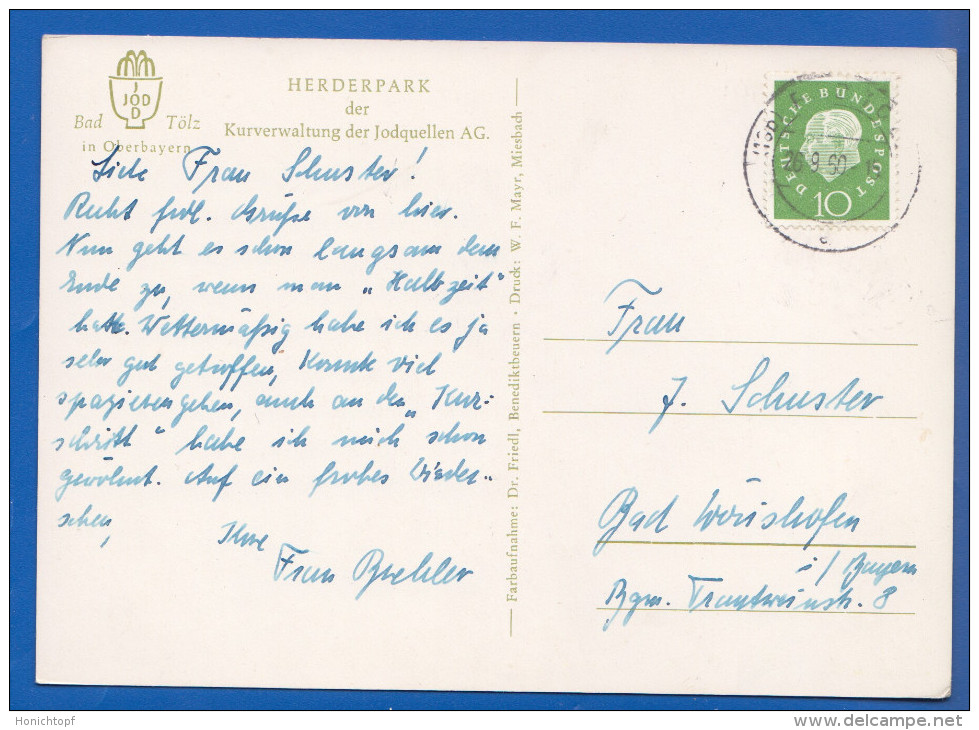 JOD
JOD
Bad Tölz
in Oberbayern
HERDERPARK
der
Kurverwaltung der Jodquellen AG.
Liebe Frau Schuster!
Recht frdl. Grüße von hier.
Nun geht es schon langsam dem
Ende zu, wenn man „Halbzeit"
hatte. Wettermäßig habe ich es ja
sehr gut getroffen, konnte viel
spazierengehen, auch an den „Kur-
schritt" habe ich mich schon
gewöhnt. Auf ein frohes Wieder-
sehen,
Ihre
Frau Brehler
Farbaufnahme: Dr. Friedl, Benediktbeuern · Druck: W. F. Mayr, Miesbach
DEUTSCHE BUNDESPOST
10
26.9.60
Frau
J. Schuster
Bad Wörishofen
i/Bayern
Bgm. Trautweinstr. 8
Honichtopf
delcampe.net